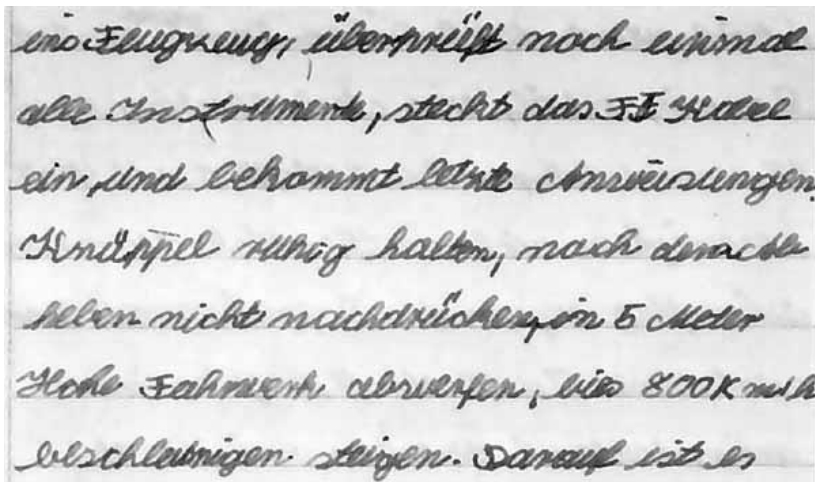 ins Flugzeug, überprüft noch einmal
alle Instrumente, steckt das FT Kabel
ein, und bekommt letzte Anweisungen
Knüppel ruhig halten, nach dem Ab
heben nicht nachdrücken, in 5 Meter
Höhe Fahrwerk abwerfen, bis 800 Km/h
beschleunigen steigen. Darauf ist es